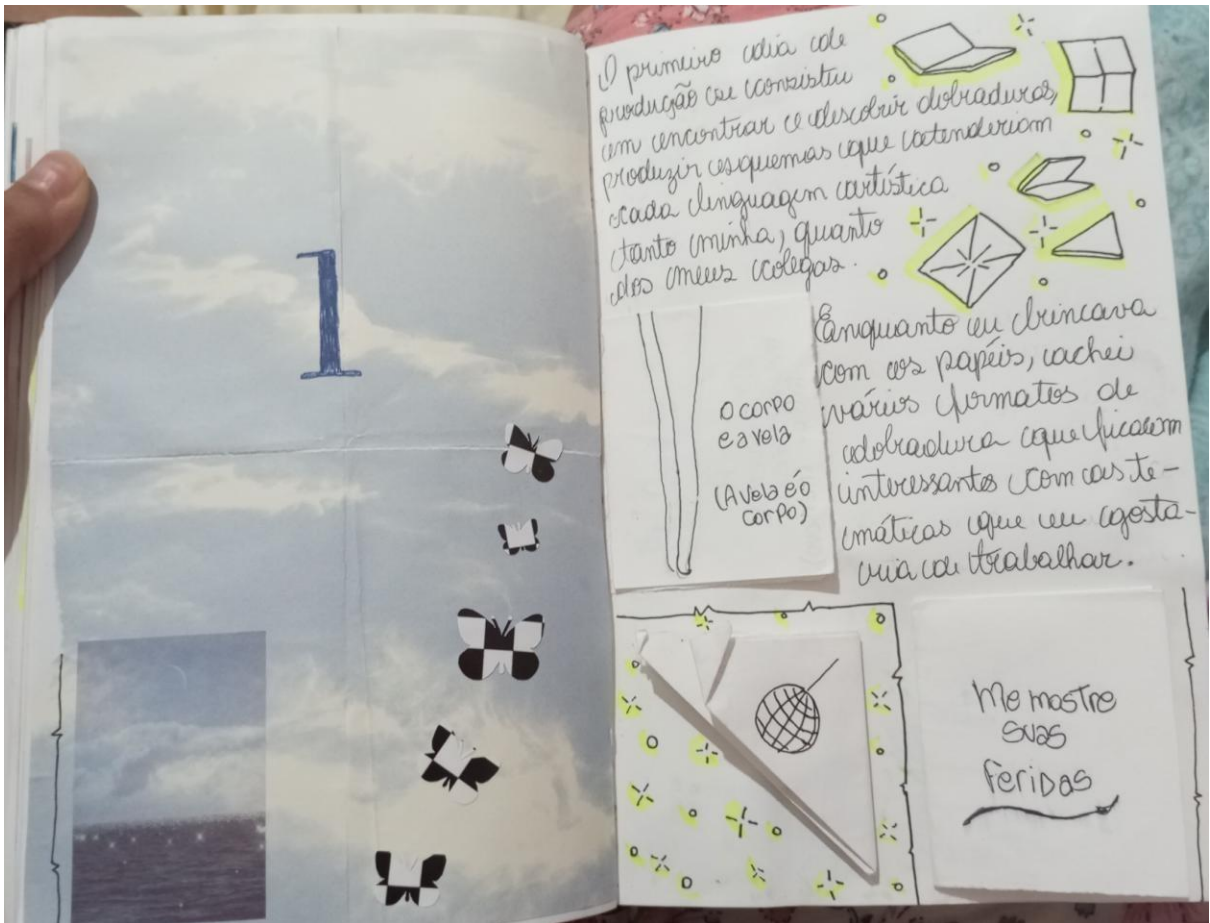 1
O primeiro dia de
produção se consistiu
em encontrar e descobrir dobraduras,
produzir esquemas que atenderiam
cada linguagem artística
tanto minha, quanto
dos meus colegas.
Enquanto eu brincava
com os papéis, achei
vários formatos de
dobradura que ficaram
interessantes com as te-
máticas que eu gosta-
ria de trabalhar.
O corpo
e a vela
(A vela é o
corpo)
Me mostre
suas
feridas